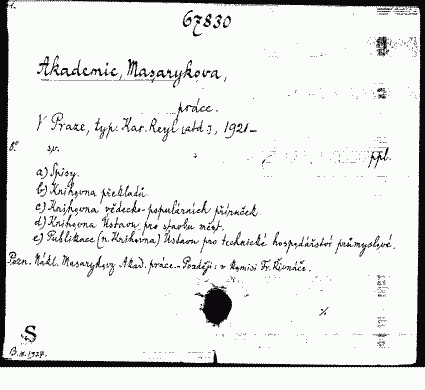 67830
Akademie, Masarykova,
práce.
V Praze, typ. Kar. Reyl [atd.], 1921-
8°. sv. ppl.
a) Spisy.
b) Knihovna překladů.
c) Knihovna vědecko-populárních příruček.
d) Knihovna Ústavu pro stavbu měst.
e) Publikace (n. Knihovna) Ústavu pro technické hospodářství průmyslové.
Pozn. Nákl. Masarykovy Akad. práce. - Později: v komisi Fr. Řivnáče.
%
S
B.II.1927.